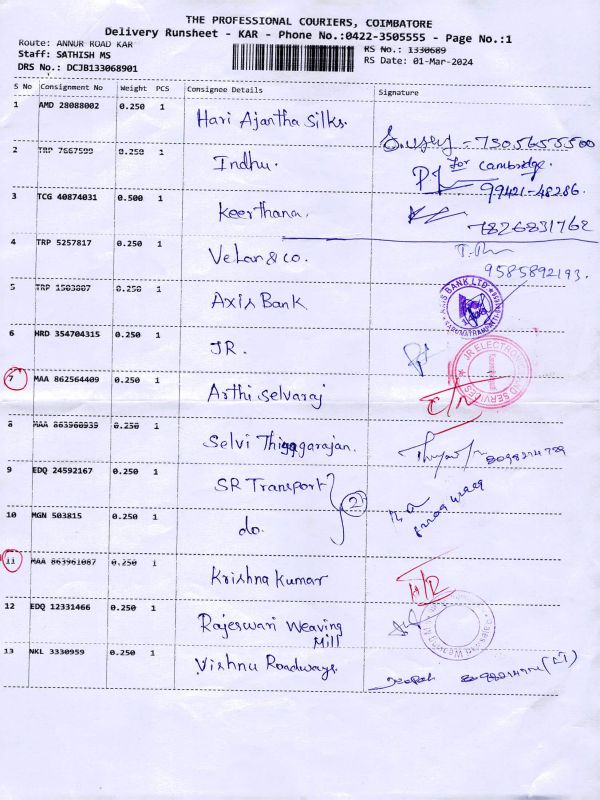 THE PROFESSIONAL COURIERS, COIMBATORE
Delivery Runsheet - KAR - Phone No.:0422-3505555 - Page No.:1
Route: ANNUR ROAD KAR
RS No.: 1330689
Staff: SATHISH MS
RS Date: 01-Mar-2024
DRS No.: DCJB133068901
S No Consignment No Weight PCS Consignee Details Signature
1 AMD 28088002 0.250 1 Hari Ajantha Silks. 7305655500
2 TRP 7667599 0.250 1 Indhu. for Cambridge. 99421-48286.
3 TCG 40874031 0.500 1 Keerthana. 7826831762
4 TRP 5257817 0.250 1 Velan & co. 9585892193.
5 TRP 1503807 0.250 1 Axis Bank AXIS BANK LTD.
6 HRD 354704315 0.250 1 JR. JR ELECTRONICS AND SERVICES
7 MAA 862564409 0.250 1 Arthi Selvaraj
8 MAA 863960939 0.250 1 Selvi Thiyagarajan.
9 EDQ 24592167 0.250 1 SR Transport 2
10 MGN 503815 0.250 1 do.
11 MAA 863961087 0.250 1 Krishna Kumar
12 EDQ 12331466 0.250 1 Rajeswari Weaving Mill
13 NKL 3330959 0.250 1 Vishnu Roadways.